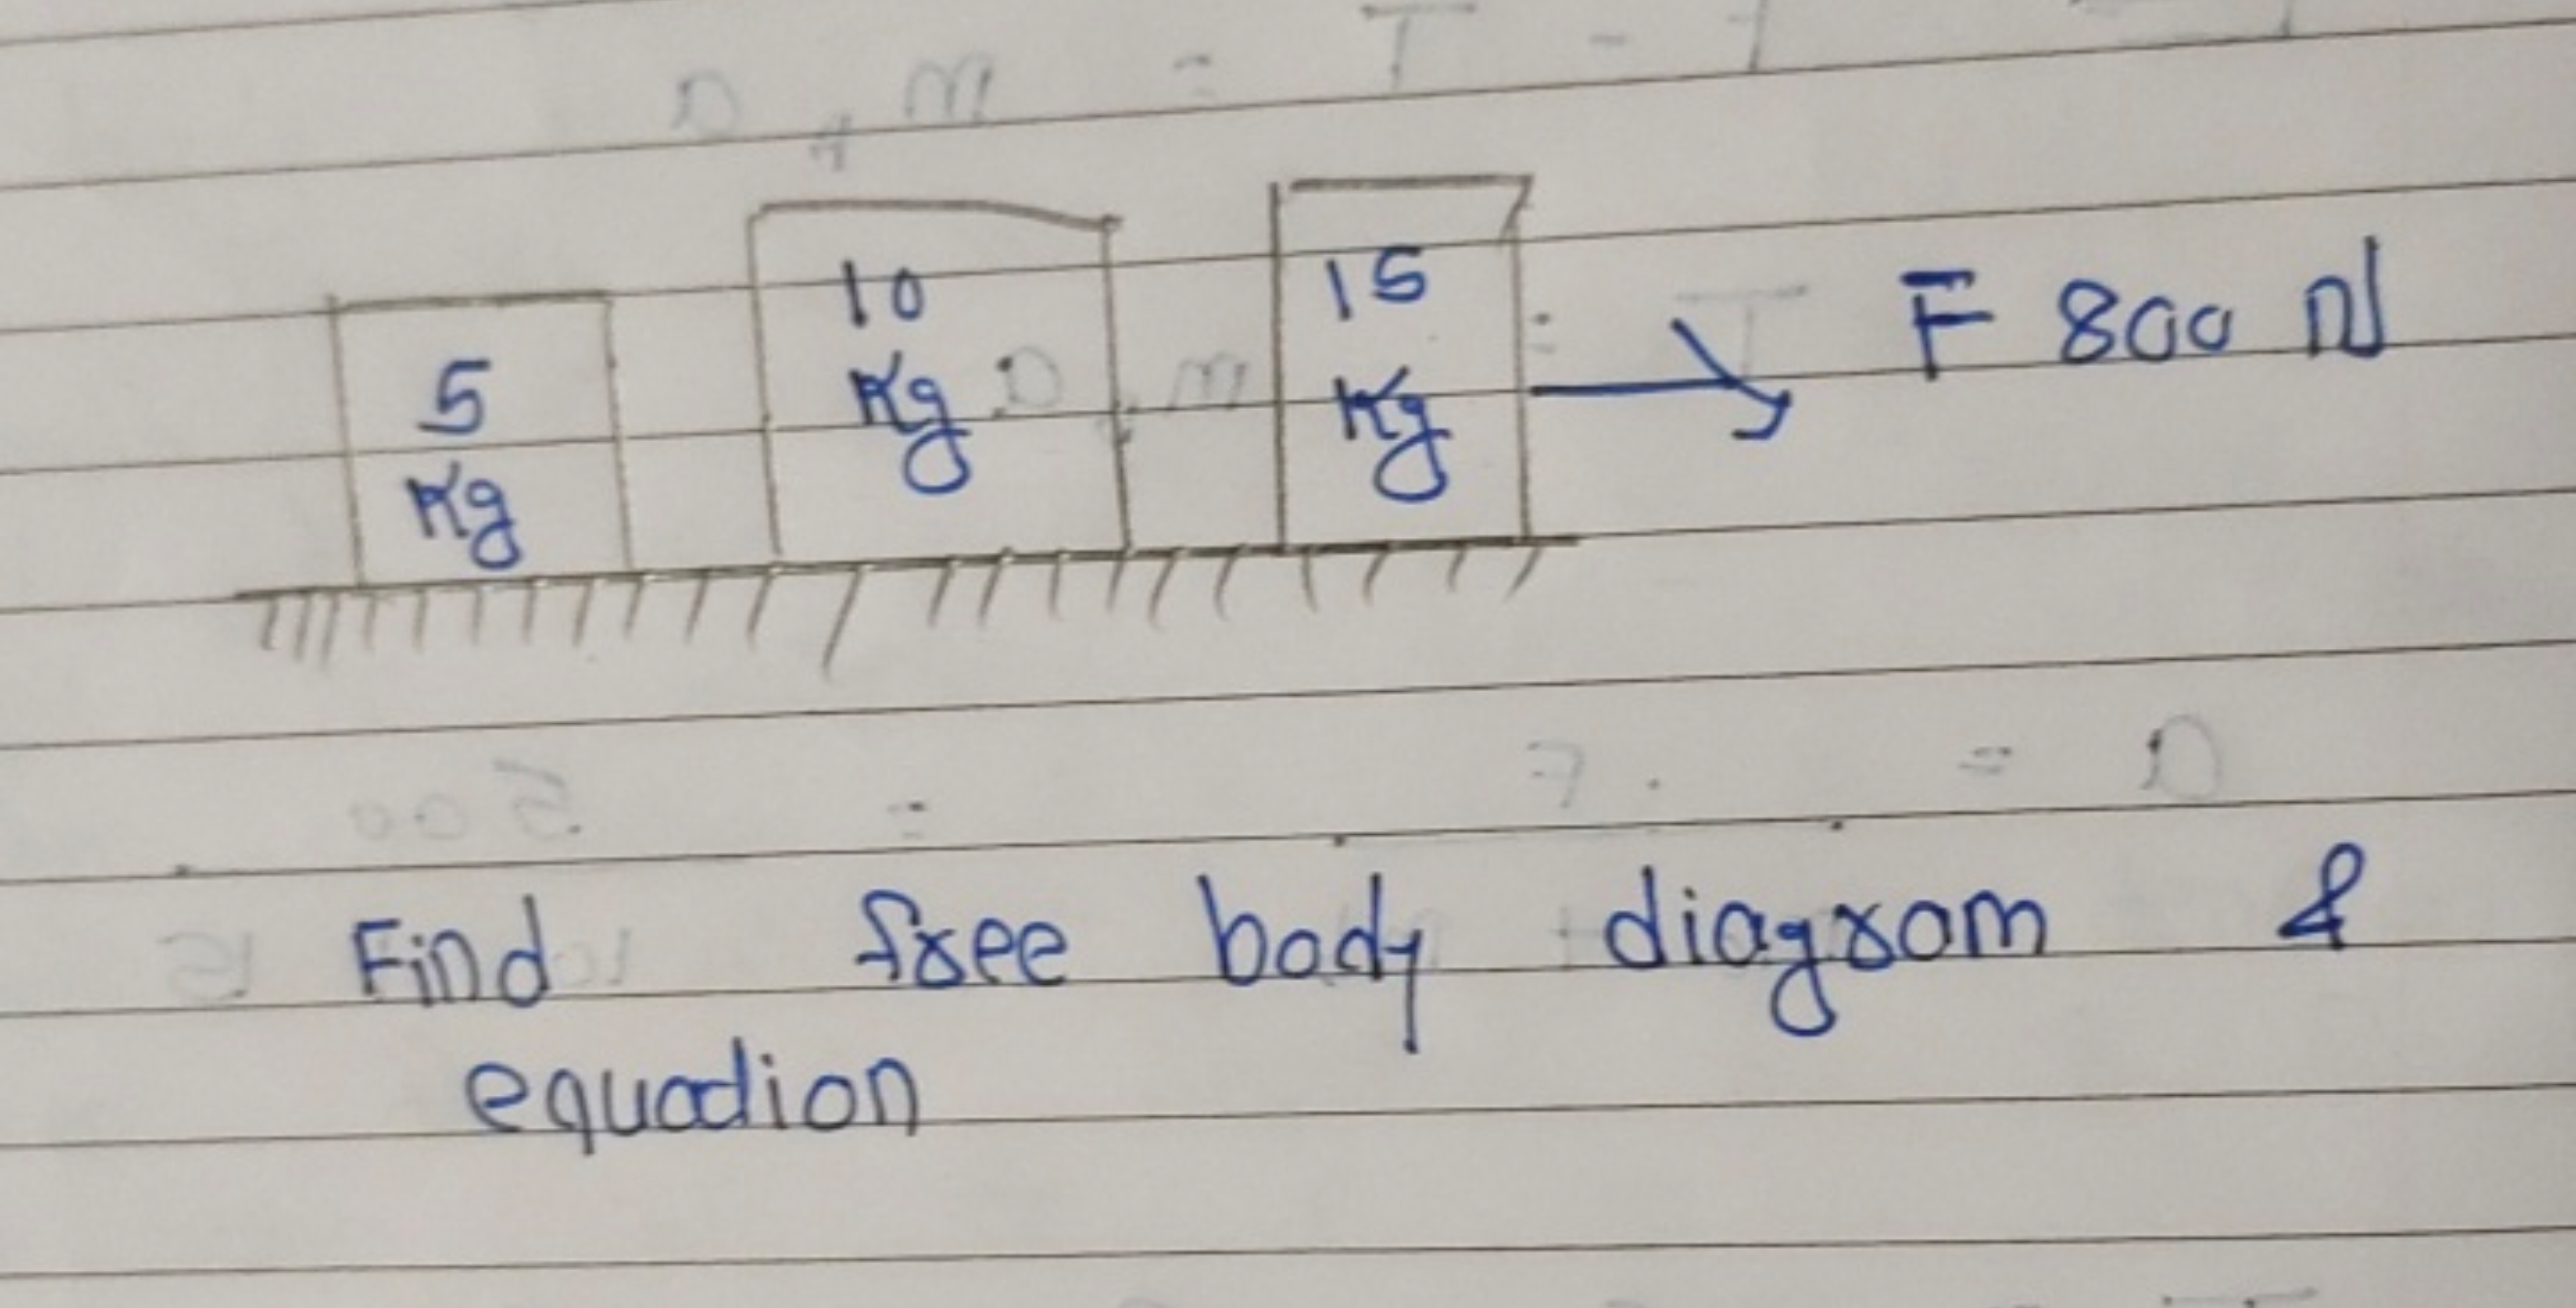 5
Kg
10
Kg
15
Kg
F 800 N
Find free body diagram &
equation